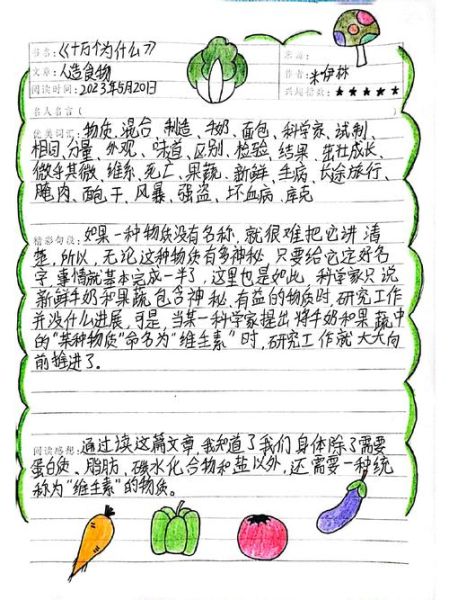 书名:《十万个为什么》
文章:人造食物
作者:米伊林
阅读时间:2023年5月20日
兴趣指数:★★★★★
名人名言(
优美词汇:物质、混合、制造、牛奶、面包、科学家、试制、
相同、分量、外观、味道、区别、检验、结果、茁壮成长、
微乎其微、维系、死亡、果蔬、新鲜、生病、长途旅行、
腌肉、面包干、风暴、强盗、坏血病、库克
精彩句段:如果一种物质没有名称,就很难把它讲清
楚,所以,无论这种物质有多神秘,只要给它定好名
字,事情就基本完成一半了,这里也是如此,科学家只说
新鲜牛奶和果蔬包含神秘、有益的物质时,研究工作
并没什么进展,可是,当某一科学家提出将牛奶和果蔬中
的“某种物质”命名为“维生素”时,研究工作就大大向
前推进了。
阅读感想:通过读这篇文章,我知道了我们身体除了需要
蛋白质、脂肪、碳水化合物和盐以外,还需要一种统
称为“维生素”的物质。